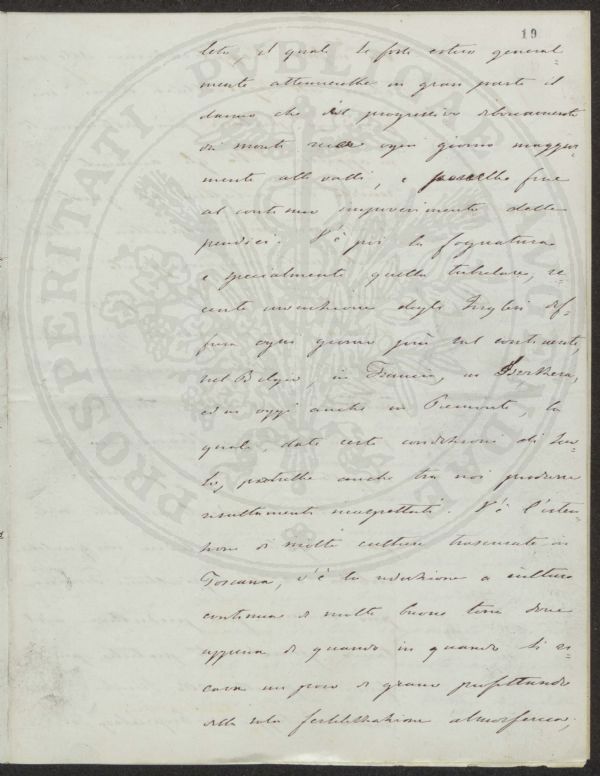 19
leto, il quale se fosse esteso general-
mente attenuerebbe in gran parte il
danno che il progressivo disboscamento
di monti reca ogni giorno maggior-
mente alle valli, e porrebbe fine
al continuo impoverimento delle
pendici. V'è poi la fognatura
e specialmente quella tubulare, re-
cente invenzione degli Inglesi dif-
fusa ogni giorno più nel continente,
nel Belgio, in Francia, in Isvizzera,
ed in oggi anche in Piemonte, la
quale, date certe condizioni di suo-
lo, potrebbe anche tra noi produrre
resultamenti inaspettati. V'è l'esten-
sione di molte culture trascurate in
Toscana, v'è la riduzione a cultura
continua di molte buone terre dove
appena di quando in quando si ri-
cava un poco di grano profittando
della sola fertilizzazione atmosferica,
PROSPERITATI PUBLICAE AUGENDAE